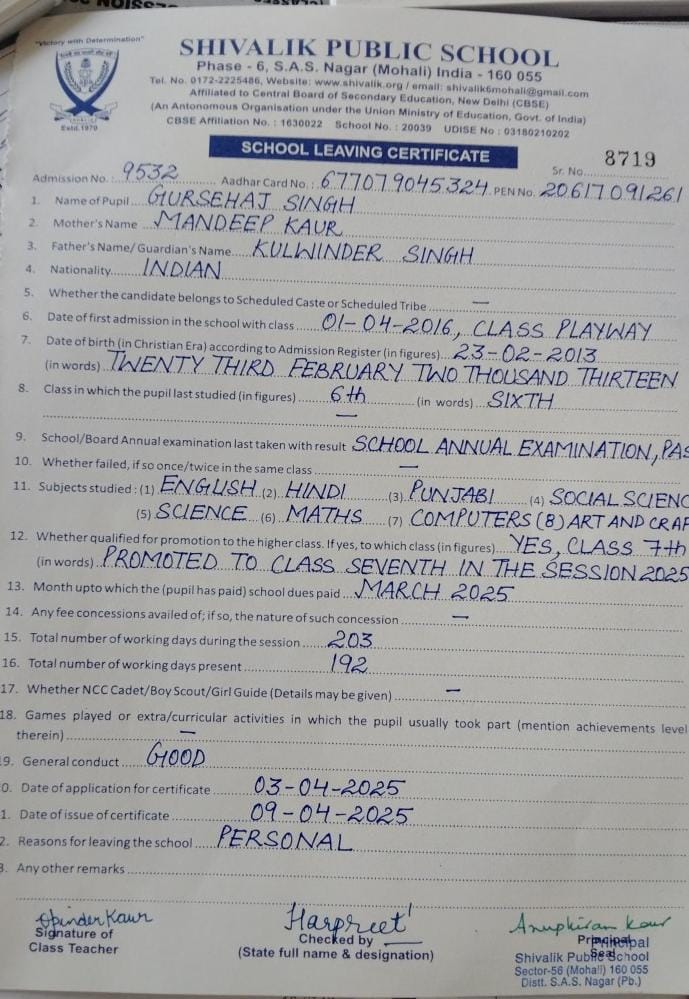 "Victory with Determination"
SHIVALIK PUBLIC SCHOOL
Phase - 6, S.A.S. Nagar (Mohali) India - 160 055
Tel. No. 0172-2225486, Website: www.shivalik.org / email: shivalik6mohali@gmail.com
Affiliated to Central Board of Secondary Education, New Delhi (CBSE)
(An Antonomous Organisation under the Union Ministry of Education, Govt. of India)
CBSE Affiliation No. : 1630022 School No. : 20039 UDISE No : 03180210202
Estd. 1970
SCHOOL LEAVING CERTIFICATE
Sr. No. 8719
Admission No. : 9532 Aadhar Card No. : 677079045324 PEN No. 20617091261
1. Name of Pupil GURSEHAJ SINGH
2. Mother's Name MANDEEP KAUR
3. Father's Name/ Guardian's Name KULWINDER SINGH
4. Nationality INDIAN
5. Whether the candidate belongs to Scheduled Caste or Scheduled Tribe —
6. Date of first admission in the school with class 01-04-2016, CLASS PLAYWAY
7. Date of birth (in Christian Era) according to Admission Register (in figures) 23-02-2013
(in words) TWENTY THIRD FEBRUARY TWO THOUSAND THIRTEEN
8. Class in which the pupil last studied (in figures) 6th (in words) SIXTH
—
9. School/Board Annual examination last taken with result SCHOOL ANNUAL EXAMINATION, PAS
10. Whether failed, if so once/twice in the same class —
11. Subjects studied : (1) ENGLISH (2) HINDI (3) PUNJABI (4) SOCIAL SCIENC
(5) SCIENCE (6) MATHS (7) COMPUTERS (8) ART AND CRAF
12. Whether qualified for promotion to the higher class. If yes, to which class (in figures) YES, CLASS 7th
(in words) PROMOTED TO CLASS SEVENTH IN THE SESSION 2025
13. Month upto which the (pupil has paid) school dues paid MARCH 2025
14. Any fee concessions availed of; if so, the nature of such concession —
15. Total number of working days during the session 203
16. Total number of working days present 192
17. Whether NCC Cadet/Boy Scout/Girl Guide (Details may be given) —
18. Games played or extra/curricular activities in which the pupil usually took part (mention achievements level
therein) —
9. General conduct GOOD
0. Date of application for certificate 03-04-2025
1. Date of issue of certificate 09-04-2025
2. Reasons for leaving the school PERSONAL
3. Any other remarks
Opinder Kaur Harpreet Anupkiran Kaur
Signature of Checked by Principal Principal
Class Teacher (State full name & designation) Seal
Shivalik Public School
Sector-56 (Mohali) 160 055
Distt. S.A.S. Nagar (Pb.)